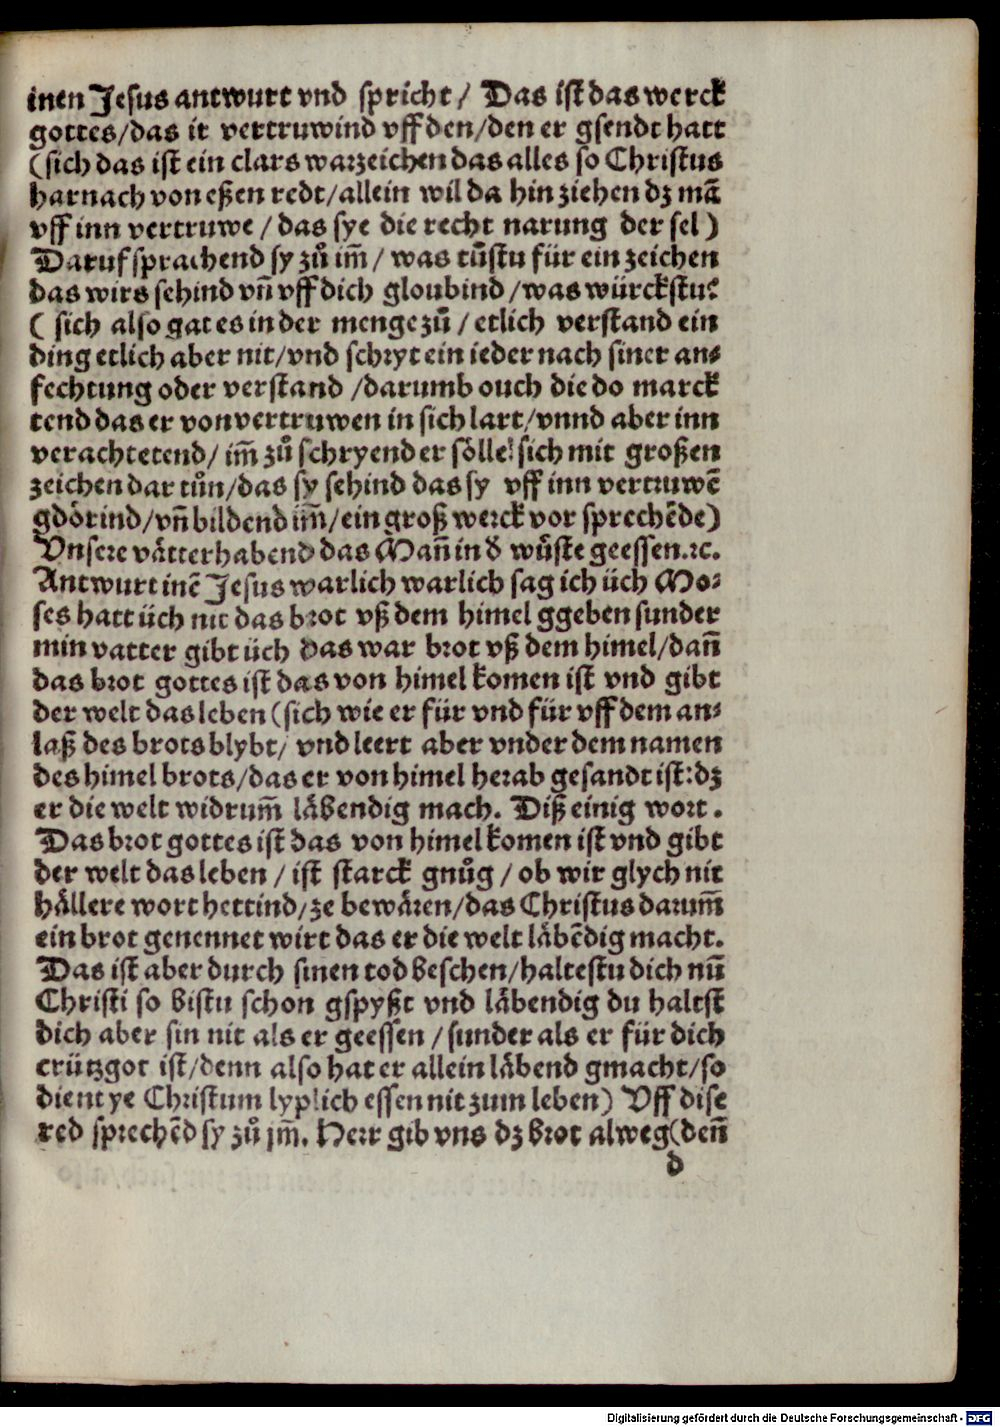 inen Jesus antwurt vnd spricht / Das ist das werck
gottes/das ir vertruwind vff den/den er gsendt hatt
(sich das ist ein clars warzeichen das alles so Christus
harnach von eßen redt/allein wil da hin ziehen dz mā
vff inn vertruwe / das sye die recht narung der sel)
Daruf sprachend sy zů im̄ / was tůstu für ein zeichen
das wirs sehind vn̄ vff dich gloubind /was würckstu?
( sich also gat es in der menge zů / etlich verstand ein
ding etlich aber nit/vnd schryt ein ieder nach siner an⸗
fechtung oder verstand /darumb ouch die do marck
tend das er von vertruwen in sich lart/vnnd aber inn
verachtetend/ im̄ zů schryend er sölle sich mit großen
zeichen dar tůn/das sy sehind das sy vff inn vertruwē
gdörind/vn̄ bildend im̄/ein groß werck vor sprechēde)
Vnsere vätter habend das Man̄ in d wůste geessen.ꝛc.
Antwurt inē Jesus warlich warlich sag ich üch Mo⸗
ses hatt üch nit das brot vß dem himel ggeben sunder
min vatter gibt üch das war brot vß dem himel/dan̄
das brot gottes ist das von himel komen ist vnd gibt
der welt das leben (sich wie er für vnd für vff dem an⸗
laß des brots blybt/ vnd leert aber vnder dem namen
des himel brots/das er von himel herab gesandt ist:dz
er die welt widrum̄ läbendig mach. Diß einig wort.
Das brot gottes ist das von himel komen ist vnd gibt
der welt das leben / ist starck gnůg / ob wir glych nit
hällere wort hettind/ze bewären/das Christus darum̄
ein brot genennet wirt das er die welt läbēdig macht.
Das ist aber durch sinen tod beschen/haltestu dich nū
Christi so bistu schon gspyßt vnd läbendig du haltst
dich aber sin nit als er geessen /sunder als er für dich
crützgot ist/denn also hat er allein läbend gmacht/so
dient ye Christum lyplich essen nit zum leben) Vff dise
red sprechēd sy zů jm̄. Herr gib vns dz brot alweg(den̄
d
Digitalisierung gefördert durch die Deutsche Forschungsgemeinschaft - DFG